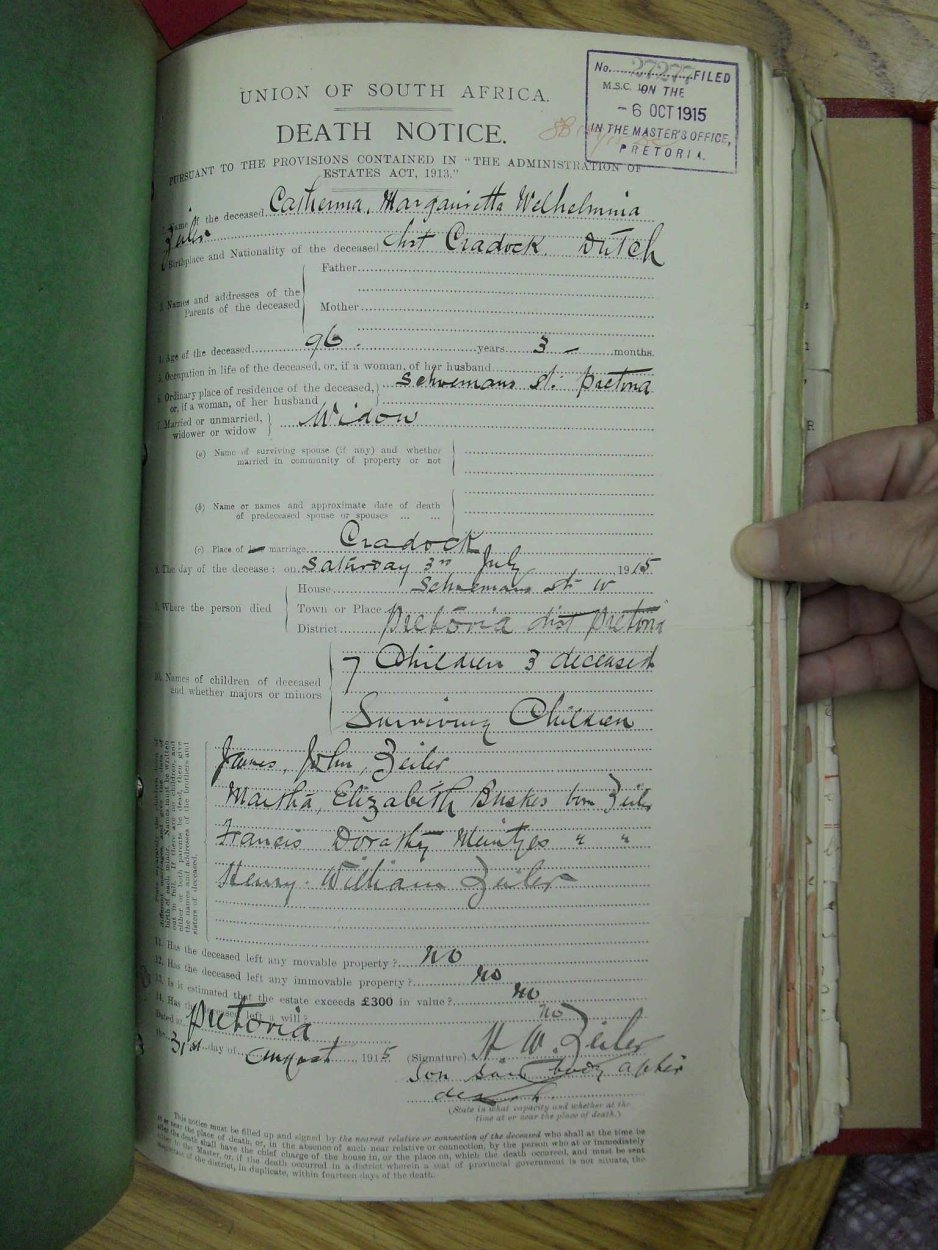 No. 27277 FILED
M.S.C. ON THE
- 6 OCT 1915
IN THE MASTER'S OFFICE,
PRETORIA.
UNION OF SOUTH AFRICA.
DEATH NOTICE.
PURSUANT TO THE PROVISIONS CONTAINED IN "THE ADMINISTRATION OF
ESTATES ACT, 1913."
Name of the deceased Catherina, Margauretta Welhelmina
Zeiler
Birthplace and Nationality of the deceased dist Cradock Dutch
Father
3. Names and addresses of the
Parents of the deceased
Mother
4. Age of the deceased 96. years 3 - months.
5. Occupation in life of the deceased, or, if a woman, of her husband
6. Ordinary place of residence of the deceased, Schoemans St. Pretoria
or, if a woman, of her husband
7. Married or unmarried, Widow
widower or widow
(a) Name of surviving spouse (if any) and whether
married in community of property or not
(b) Name or names and approximate date of death
of predeceased spouse or spouses ... ...
(c) Place of marriage Cradock
8. The day of the decease: on Saturday 3rd July 1915
House Schoemans St W
9. Where the person died
Town or Place Pretoria dist Pretoria
District
7 Children 3 deceased
10. Names of children of deceased
and whether majors or minors
Surviving Children
James, John, Zeiler
Martha, Elizabeth Buskes born Zeiler
Francis Dorathy Meintjes " "
Henry William Zeiler
11. Has the deceased left any movable property? no
12. Has the deceased left any immovable property? no
13. Is it estimated that the estate exceeds £300 in value? no
14. Has the deceased left a will? no
Dated at Pretoria
the 31st day of August 1915 (Signature) H W. Zeiler
Son saw body after
death.
(State in what capacity and whether at the
time at or near the place of death.)
This notice must be filled up and signed by the nearest relative or connection of the deceased who shall at the time be
at or near the place of death, or, in the absence of such near relative or connection, by the person who at or immediately
after the death shall have the chief charge of the house in, or the place on, which the death occurred, and must be sent
to the Master, or, if the death occurred in a district wherein a seat of provincial government is not situate, the
of the district, in duplicate, within fourteen days of the death.